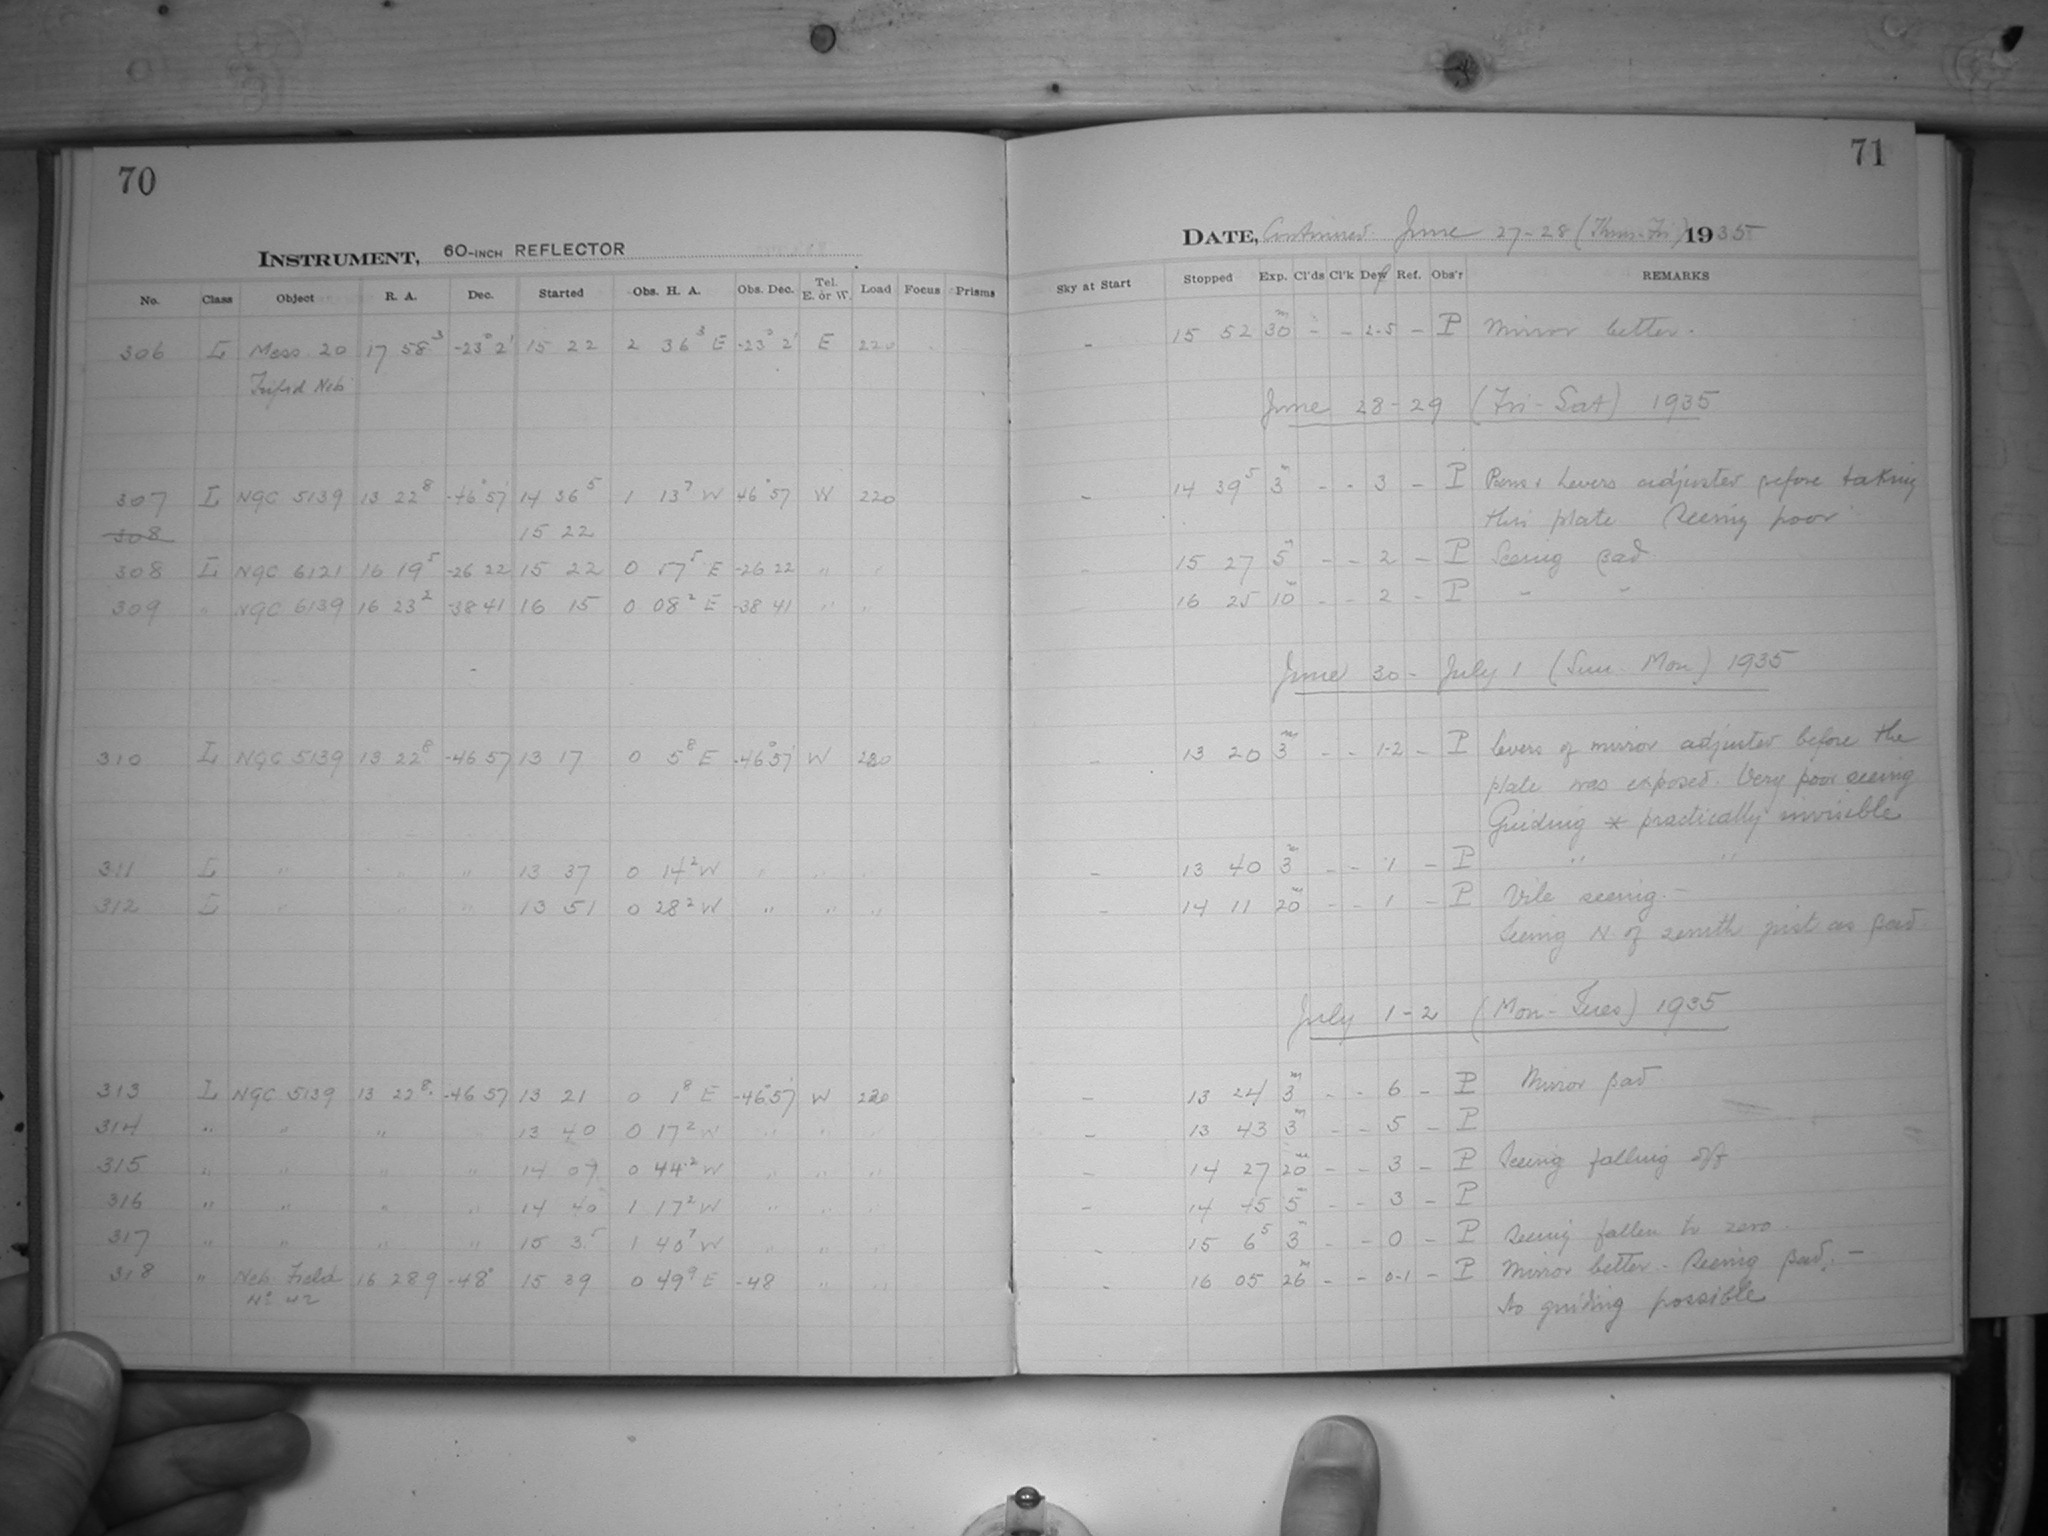 70
INSTRUMENT, 60-INCH REFLECTOR
No. Class Object R. A. Dec. Started Obs. H. A. Obs. Dec. Tel. E. or W. Load Focus Prisms
306 L Mess 20 17 58³ -23° 2' 15 22 2 36³ E -23° 2' E 220
Trifid Neb
307 L NGC 5139 13 22⁸ -46° 57' 14 36⁵ 1 13⁷ W 46° 57' W 220
308 15 22
308 L NGC 6121 16 19⁵ -26 22 15 22 0 57⁵ E -26 22 " "
309 " NGC 6139 16 23² -38 41 16 15 0 08² E -38 41 " "
310 L NGC 5139 13 22⁸ -46 57 13 17 0 5⁸ E -46° 57' W 220
311 L " " " 13 37 0 14² W " " "
312 L " " " 13 51 0 28² W " " "
313 L NGC 5139 13 22⁸ -46 57 13 21 0 1⁸ E -46° 57' W 220
314 " " " " 13 40 0 17² W " " "
315 " " " " 14 07 0 44² W " " "
316 " " " " 14 40 1 17² W " " "
317 " " " " 15 3⁵ 1 40⁷ W " " "
318 " Neb. Field 16 28 9 -48° 15 39 0 49⁹ E -48 " "
No 42
71
DATE, Continued June 27-28 (Thurs-Fri) 1935
Sky at Start Stopped Exp. Cl'ds Cl'k Dew Ref. Obs'r REMARKS
- 15 52 30ᵐ - - 2-5 - P Mirror better.
June 28-29 (Fri-Sat) 1935
- 14 39⁵ 3ᵐ - - 3 - P Levers adjusted before taking
this plate Seeing poor
- 15 27 5ᵐ - - 2 - P Seeing bad
16 25 10ᵐ - - 2 - P - -
June 30 - July 1 (Sun-Mon) 1935
- 13 20 3ᵐ - - 1-2 - P Levers of mirror adjusted before the
plate was exposed. Very poor seeing
Guiding * practically invisible
- 13 40 3ᵐ - - 1 - P " "
- 14 11 20ᵐ - - 1 - P Vile seeing.-
Seeing N. of zenith just as bad
July 1-2 (Mon-Tues) 1935
- 13 24 3ᵐ - - 6 - P Mirror bad
- 13 43 3ᵐ - - 5 - P
- 14 27 20ᵐ - - 3 - P Seeing falling off
- 14 45 5ᵐ - - 3 - P
- 15 6⁵ 3ᵐ - - 0 - P Seeing fallen to zero.
- 16 05 26ᵐ - - 0-1 - P Mirror better - Seeing bad. -
No guiding possible